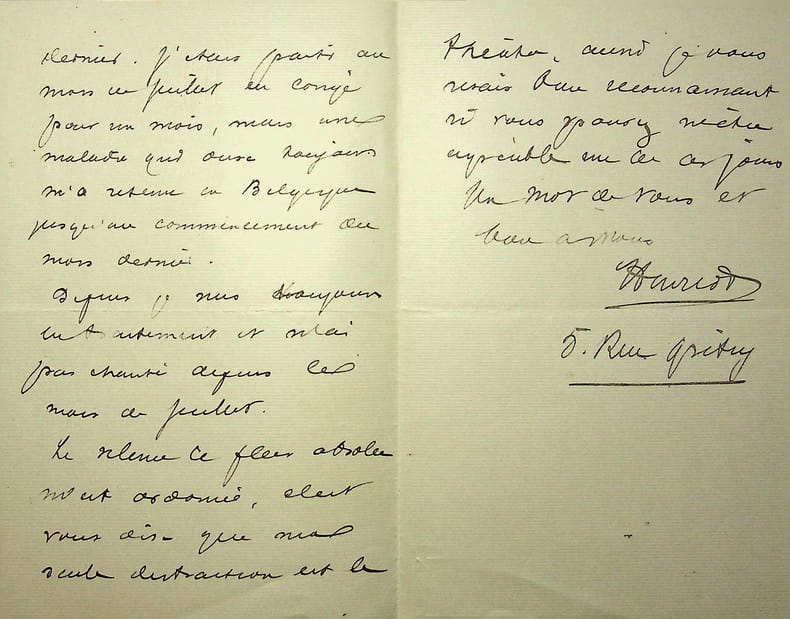 dernier. j'étais parti au
mois de juillet en congé
pour un mois, mais une
maladie qui dure toujours
m'a retenu en Belgique
jusqu'au commencement du
mois dernier.
Depuis je suis toujours
en traitement et n'ai
pas chanté depuis le
mois de juillet.
Le silence le plus absolu
m'est ordonné, c'est
vous dire que ma
seule distraction est le
théâtre, aussi je vous
serais bien reconnaissant
si vous pouvez m'être
agréable un de ces jours
Un mot de vous et
bien à vous
Henriot
5. Rue Grétry